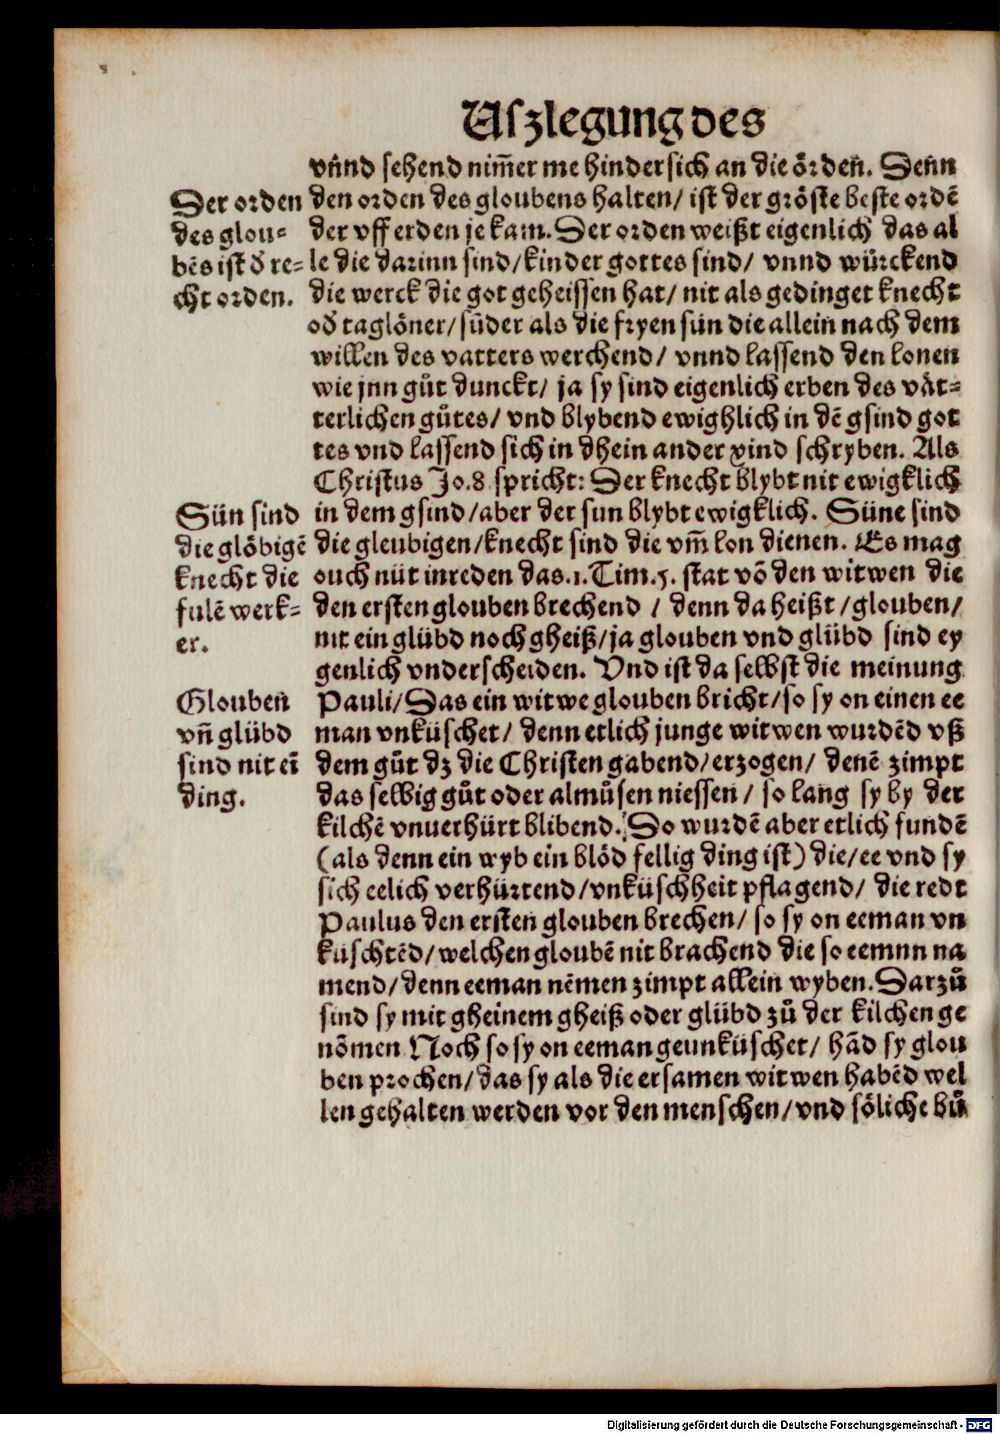 Uszlegung des
vn̄nd sehend nim̄er me hindersich an die örden̄. Denn
den orden des gloubens halten/ ist der gröste beste ordē
der vff erden je kam. Der orden weißt eigenlich das al
le die darinn sind/kinder gottes sind/ vnnd würckend
die werck die got geheissen hat/ nit als gedinget knecht
od̛ taglöner/ sūder als die fryen sün die allein nach dem
willen des vatters werchend/ vnnd lassend den lonen
wie jnn gůt dunckt/ ja sy sind eigenlich erben des vät-
terlichen gůtes/ vnd blybend ewighlich in dē gsind got
tes vnd lassend sich in dhein ander xind schryben. Als
Christus Jo.8 spricht: Der knecht blybt nit ewigklich
in dem gsind/aber der sun blybt ewigklich. Süne sind
die gleubigen/knecht sind die vm̄ lon dienen. Es mag
ouch nüt inreden das.1.Tim.5. stat vō den witwen die
den ersten glouben brechend / denn da heißt/glouben/
nit ein glübd noch gheiß/ja glouben vnd glübd sind ey
genlich vnderscheiden. Vnd ist da selbst die meinung
Pauli/Das ein witwe glouben bricht/so sy on einen ee
man vnküschet/ denn etlich junge witwen wurdēd vß
dem gůt dz die Christen gabend/erzogen/ denē zimpt
das selbig gůt oder almůsen niessen/ so lang sy by der
kilchē vnuerhürt blibend. So wurdē aber etlich fundē
(als denn ein wyb ein blöd fellig ding ist) die/ee vnd sy
sich eelich verhürtend/vnküschheit pflagend/ die redt
Paulus den ersten glouben brechen/ so sy on eeman vn
küschtēd/welchen gloubē nit brachend die so eemnn na
mend/denn eeman nēmen zimpt allein wyben. Darzů
sind sy mit gheinem gheiß oder glübd zů der kilchen ge
nōmen Noch so sy on eeman geunküschet/ hād sy glou
ben prochen/das sy als die ersamen witwen habēd wel
len gehalten werden vor den menschen/vnd söliche bů
Der orden
des glou-
bēs ist d̛ re-
cht orden.
Sün sind
die glöbigē
knecht die
fulē werk-
er.
Glouben
vn̄ glübd
sind nit eī
ding.
Digitalisierung gefördert durch die Deutsche Forschungsgemeinschaft - DFG